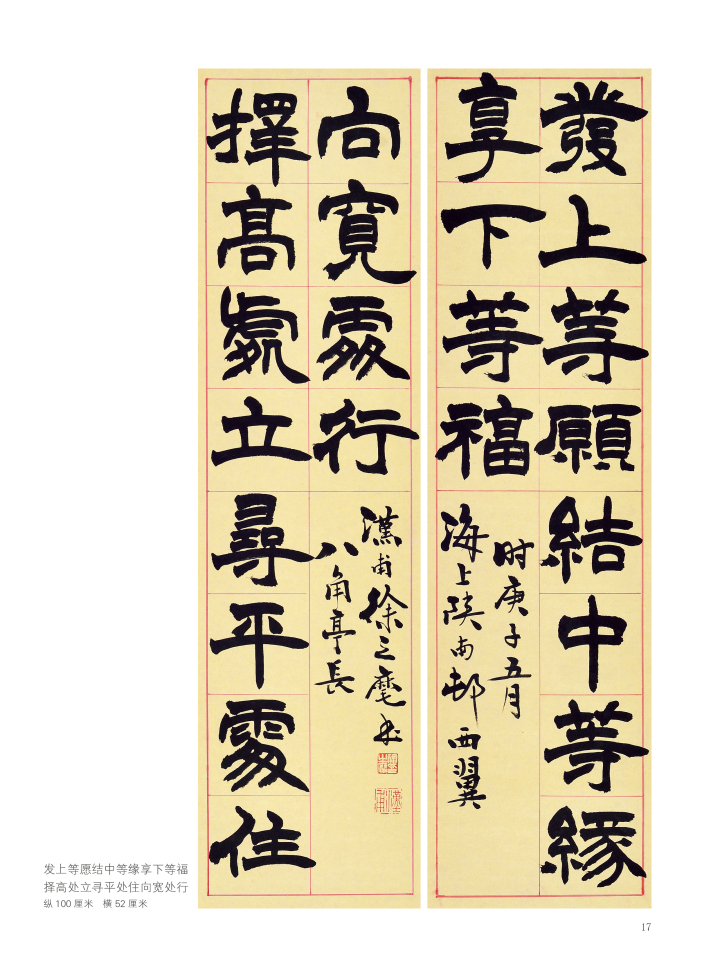 發上等願結中等緣
享下等福
時庚子五月
海上陝南邨西翼
擇高處立尋平處住
向寬處行
漢甫徐之麾書
八角亭長
发上等愿结中等缘享下等福
择高处立寻平处住向宽处行
纵 100 厘米　横 52 厘米
17